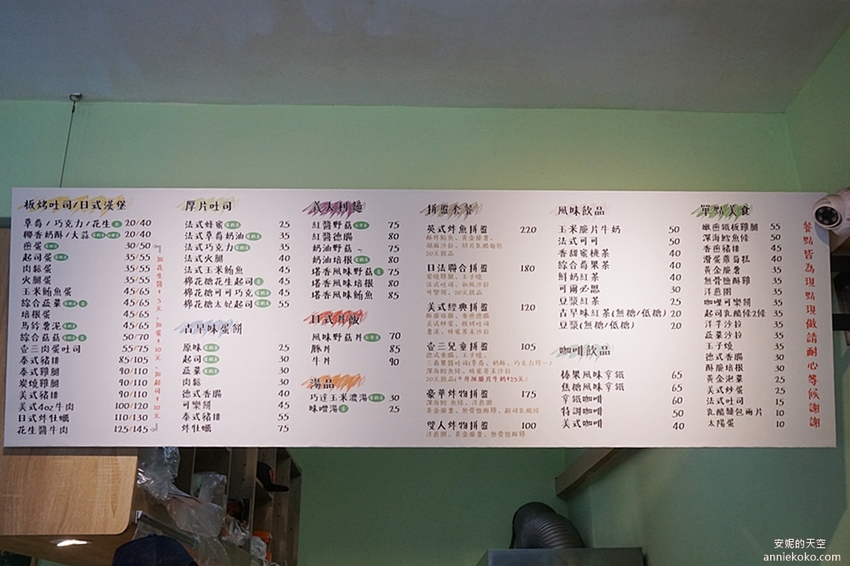 板烤吐司/日式漢堡
草莓/巧克力/花生 20/40
椰香奶酥/大蒜 20/40
煎蛋 30/50
起司蛋 35/55
肉鬆蛋 35/55
火腿蛋 35/55
玉米鮪魚蛋 45/65
綜合蔬菜 45/65
培根蛋 45/65
馬鈴薯泥 45/65
綜合菇菇 50/70
壹三肉蛋吐司 55/75
泰式豬排 85/105
泰式雞腿
炭燒雞腿
美式豬排
美式4oz牛肉 100/120
日式炸牡蠣 110/130
花生醬牛肉 125/145
厚片吐司
法式蜂蜜 25
法式草莓奶油 35
法式巧克力 35
法式火腿 40
法式玉米鮪魚 45
棉花糖花生起司 45
棉花糖可可巧克 45
棉花糖太妃起司 45
古早味蛋餅
原味 25
起司 30
蔬菜 30
肉鬆 30
德式香腸 40
可樂餅 45
泰式豬排 55
炸牡蠣 75
義大利麵
紅醬野菇 75
紅醬德腸 80
奶油野菇 75
奶油培根 80
塔香風味野菇 75
塔香風味培根 80
塔香風味鮪魚 85
日式丼飯
風味野菇丼 70
豚丼 85
牛丼 90
湯品
巧達玉米濃湯 30
味噌湯 25
拼盤套餐
英式炸魚拼盤 220
日法聯合拼盤 180
美式經典拼盤 120
壹三兒童拼盤 105
豪華炸物拼盤 175
雙人炸物拼盤 100
風味飲品
玉米脆片牛奶 50
法式可可 50
香甜蜜桃茶 30
綜合莓果茶 30
鮮奶紅茶 30
可爾必思 30
豆漿紅茶 25
古早味紅茶(無糖/低糖) 20
豆漿(無糖/低糖) 20
咖啡飲品
榛果風味拿鐵 65
焦糖風味拿鐵 65
拿鐵咖啡 60
特調咖啡 50
美式咖啡 40
單點美食
嫩煎鐵板雞腿 55
深海鱈魚條 50
香煎豬排 45
滑蛋蘑菇糕 40
黃金脆薯 35
無骨鹽酥雞 35
洋蔥圈 35
咖哩可樂餅 35
起司乳酪條2條 35
洋芋沙拉 35
蔬菜沙拉 35
玉子燒 35
德式香腸 30
酥脆培根 30
黃金泡菜 25
美式炒蛋 25
法式吐司 15
乳酪麵包兩片 10
太陽蛋 10
餐點皆為現點現做請耐心等候謝謝
安妮的天空
anniekoko.com